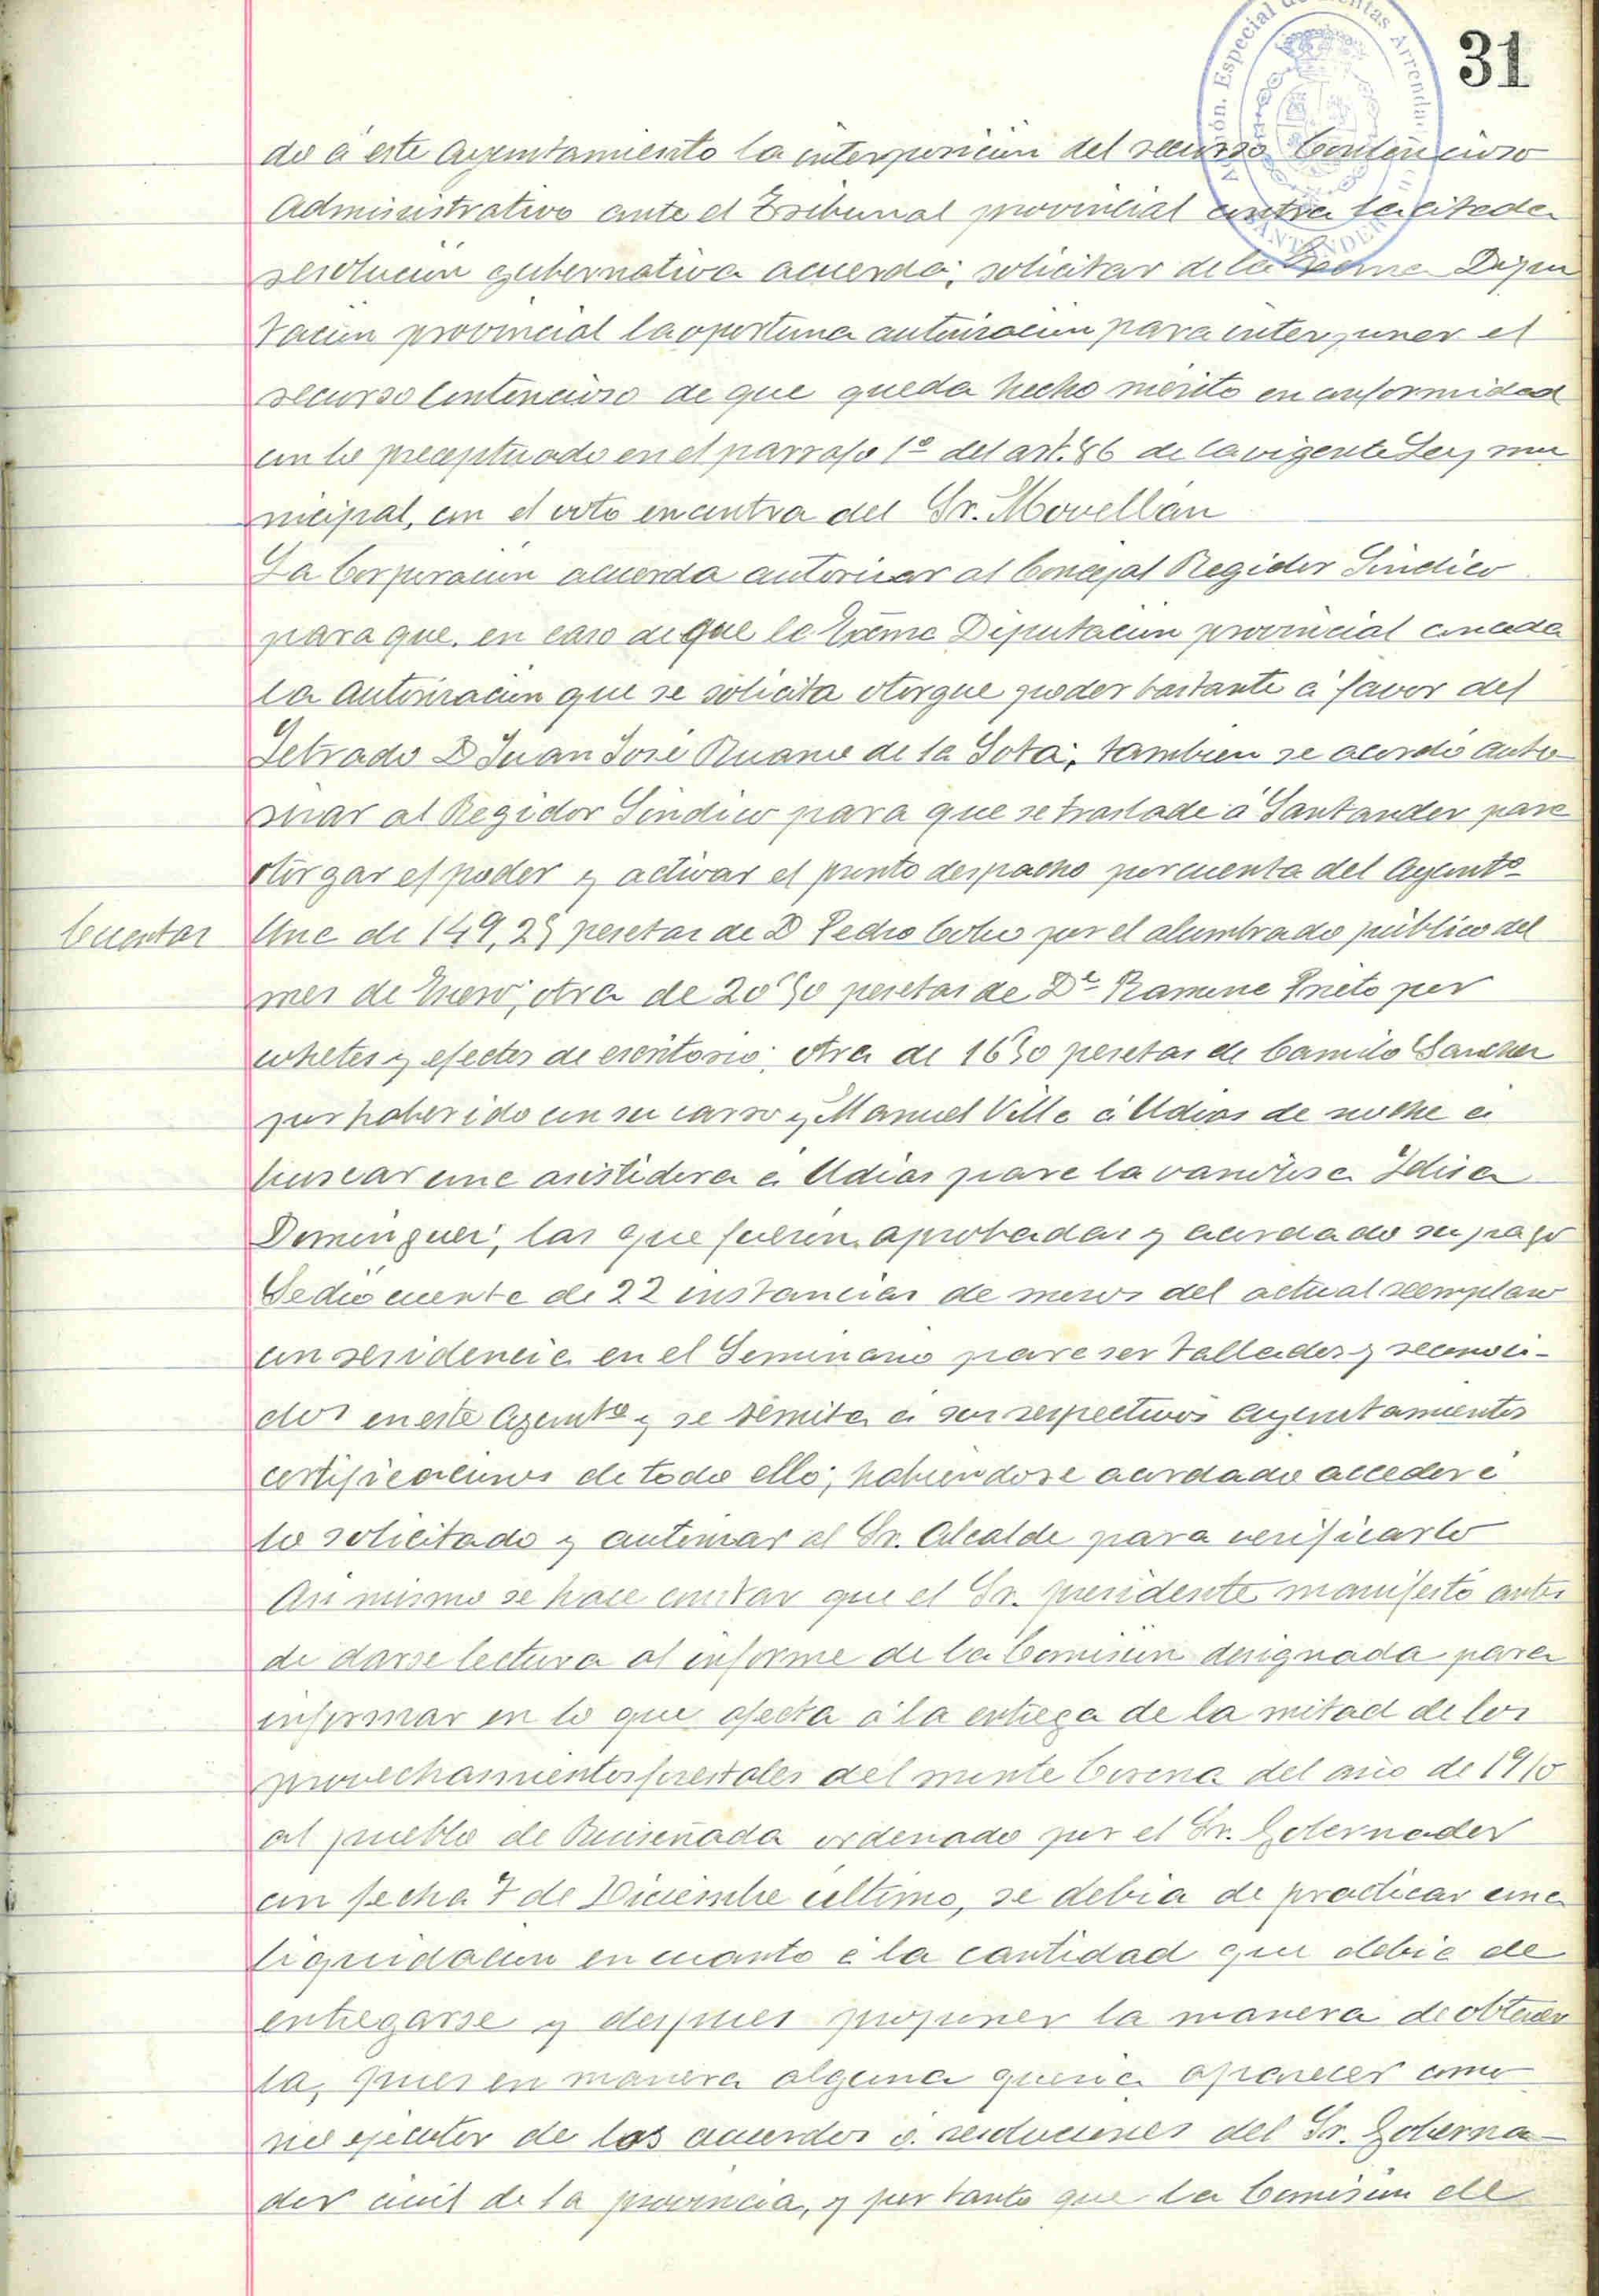 31
Especial de Rentas Arrendadas
SANTANDER
do á este Ayuntamiento la interposición del recurso Contencioso
Administrativo ante el Tribunal provincial contra la citada
resolución gubernativa acuerda; solicitar de la Excma Dipu
tación provincial la oportuna autorización para interponer el
recurso Contencioso de que queda hecho mérito en conformidad
con lo preceptuado en el parrafo 1º del art. 86 de la vigente Ley mu
nicipal, con el voto en contra del Sr. Movellán
La Corporación acuerda autorizar al Concejal Regidor Síndico
para que, en caso de que la Excma Diputación provincial conceda
la autorización que se solicita otorgue poder bastante á favor del
Letrado D Juan José Ruano de la Sota; tambien se acordó auto
rizar al Regidor Síndico para que se traslade á Santander para
otorgar el poder y activar el pronto despacho por cuenta del Ayuntº
Cuentas
Una de 149,25 pesetas de D Pedro Cobo por el alumbrado público del
mes de Enero; otra de 20'50 pesetas de Dª Ramona Prieto por
cohetes y efectos de escritorio; otra de 16'50 pesetas de Camilo Sanchez
por haber ido con su carro y Manuel Villa á Udias de noche á
buscar una asistidora á Udias para la variolosa
Dominguez; las que fueron aprobadas y acordado su pago
Se dió cuenta de 22 instancias de mozos del actual reemplazo
con residencia en el Seminario para ser tallados y reconoci-
dos en este Ayuntº y se remita á sus respectivos Ayuntamientos
certificaciones de todo ello; habiendose acordado acceder á
lo solicitado y autorizar al Sr. Alcalde para verificarlo
Asi mismo se hace constar que el Sr. presidente manifestó antes
de darse lectura al informe de la Comisión designada para
informar en lo que afecta á la entrega de la mitad de los
provechamientos forestales del monte Corona del año de 1910
al pueblo de Ruiseñada ordenado por el Sr. Gobernador
con fecha 7 de Diciembre último, se debia de practicar una
liquidación en cuanto á la cantidad que debia de
entregarse y despues proponer la manera de obtener
la, pues en manera alguna queria aparecer como
no ejecutor de los acuerdos ó resoluciones del Sr. Goberna-
dor civil de la provincia, y por tanto que la Comisión de